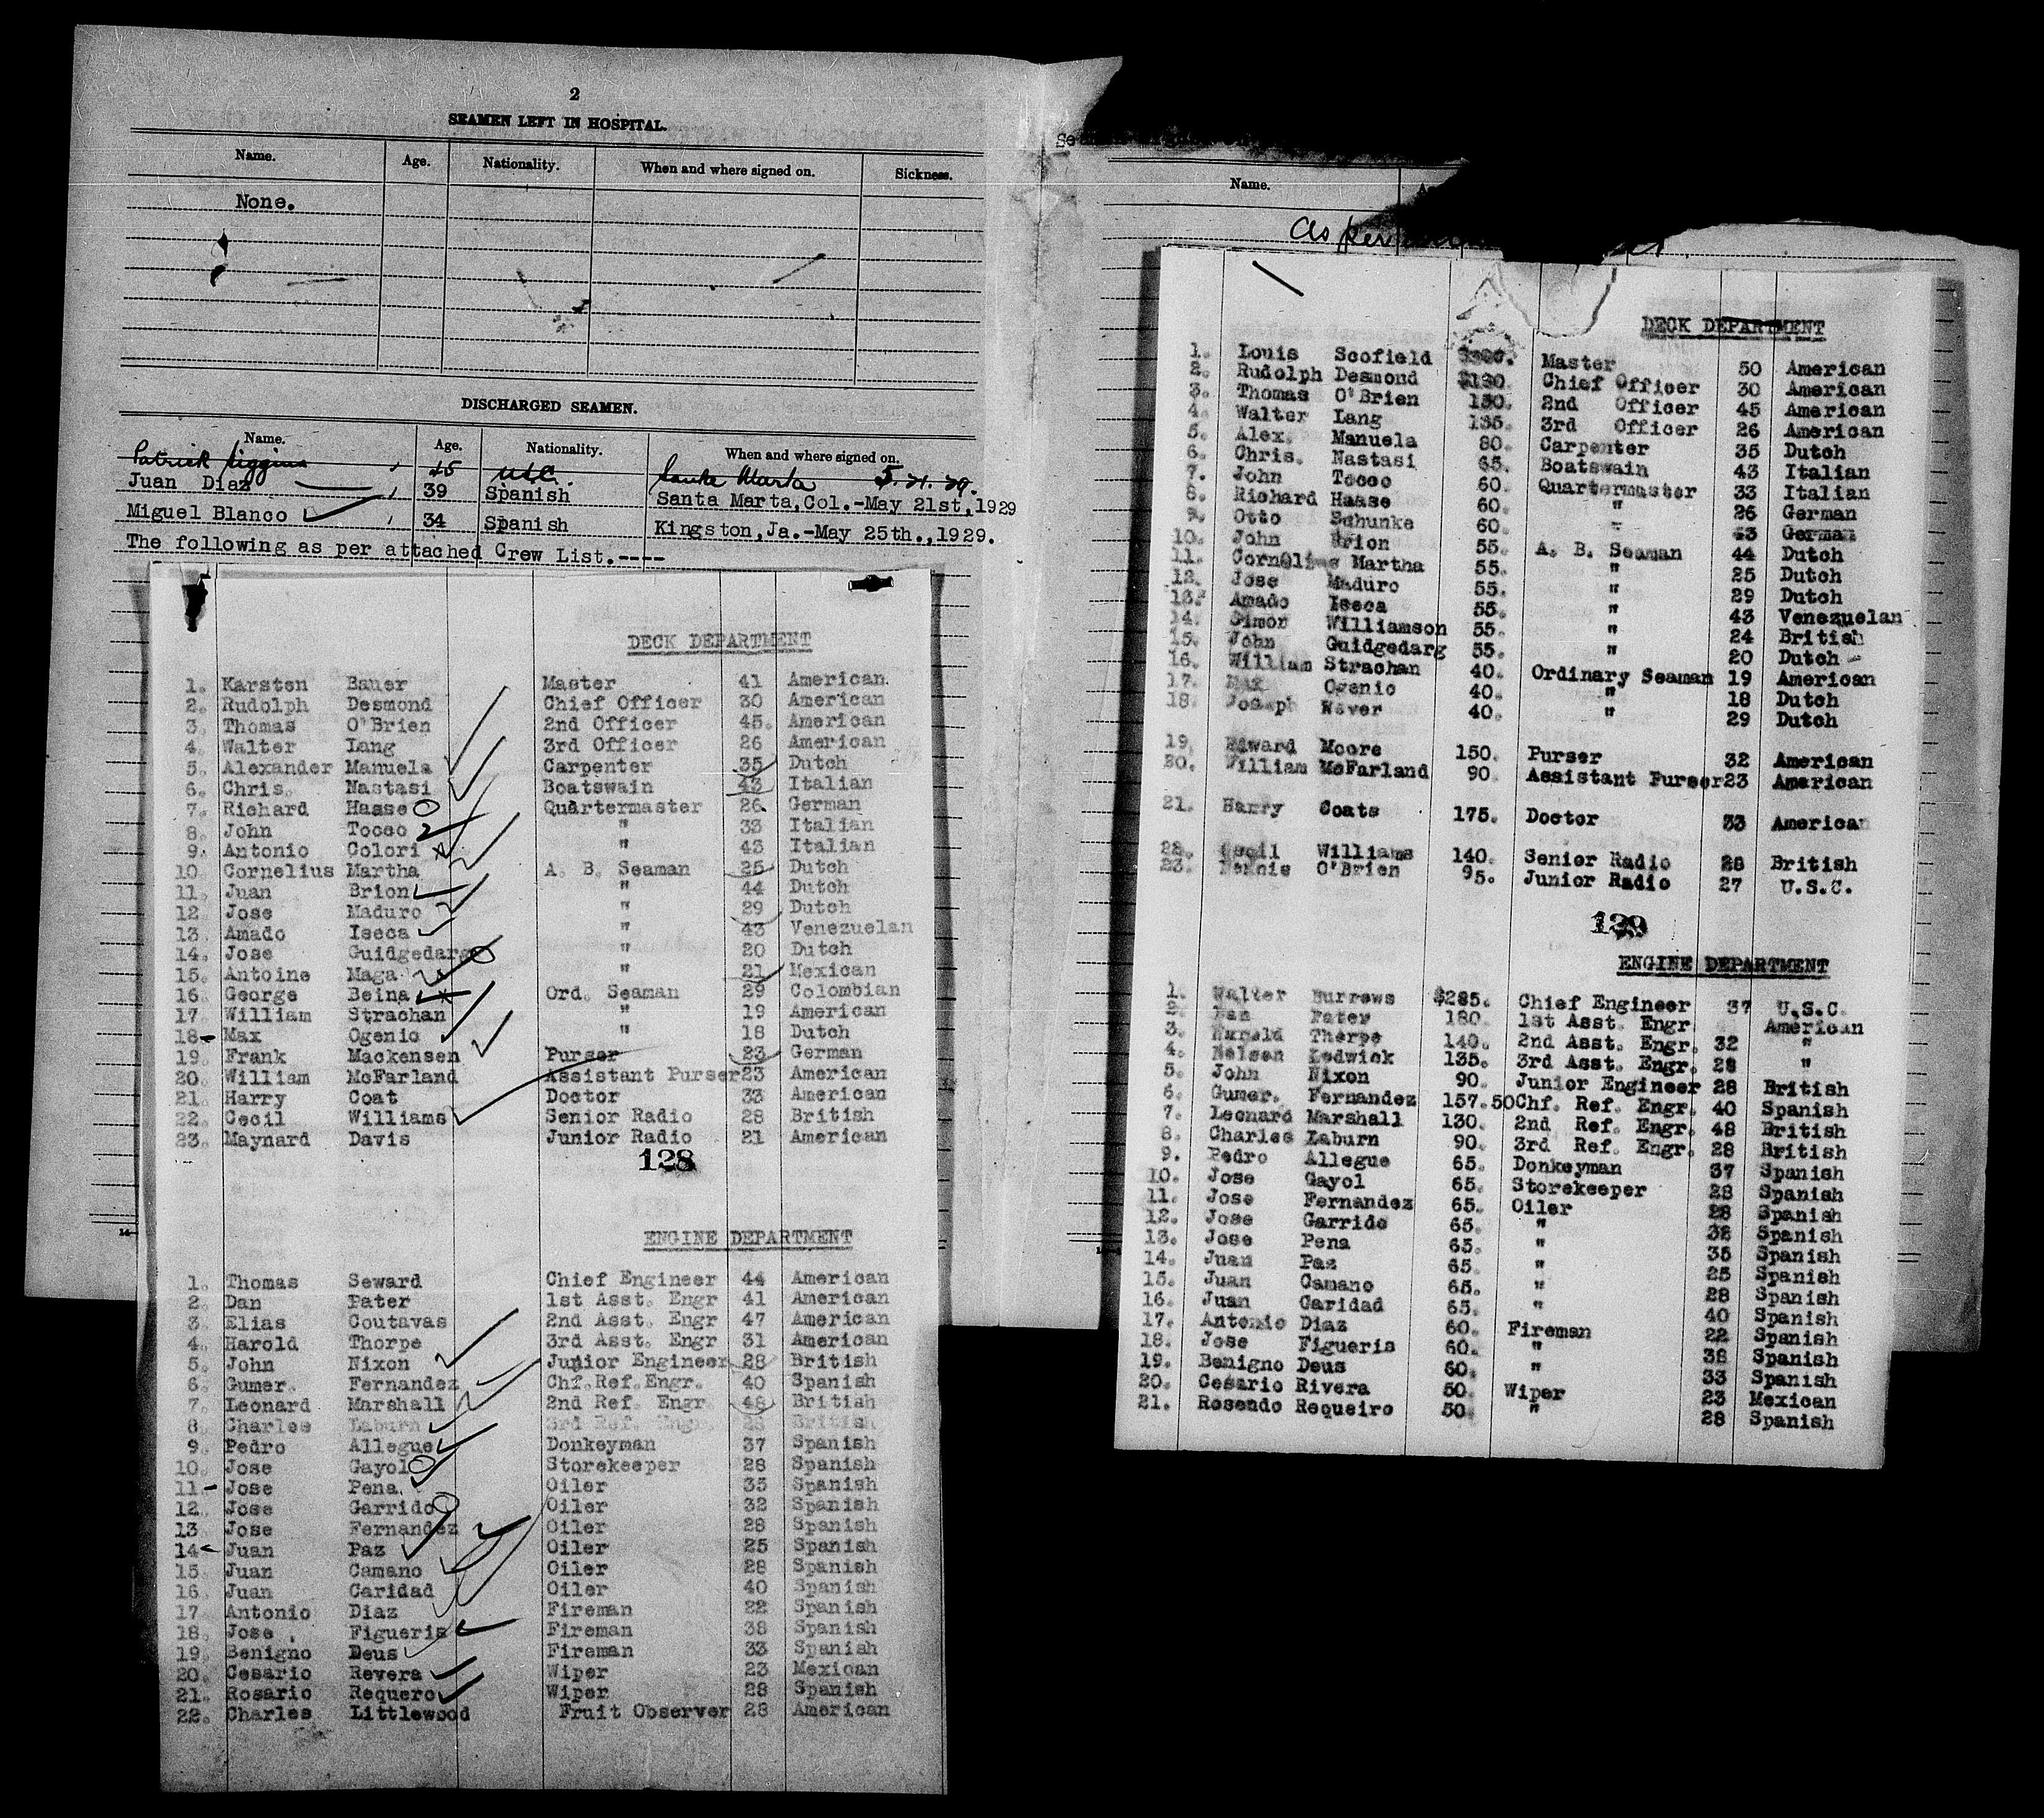 2
SEAMEN LEFT IN HOSPITAL.
Name. Age. Nationality. When and where signed on. Sickness.
None.
DISCHARGED SEAMEN.
Name. Age. Nationality. When and where signed on.
Patrick Higgins 45 USC. Santa Marta 5.21.29.
Juan Diaz 39 Spanish Santa Marta, Col.-May 21st, 1929
Miguel Blanco 34 Spanish Kingston, Ja.-May 25th., 1929.
The following as per attached Crew List.----
DECK DEPARTMENT
1. Karsten Bauer Master 41 American.
2. Rudolph Desmond Chief Officer 30 American
3. Thomas O'Brien 2nd Officer 45. American
4. Walter Lang 3rd Officer 26 American
5. Alexander Manuela Carpenter 35 Dutch
6. Chris. Nastasi Boatswain 43 Italian
7. Richard Hasse Quartermaster 26. German
8. John Tocco " 33 Italian
9. Antonio Colori " 43 Italian
10. Cornelius Martha A. B. Seaman 25 Dutch
11. Juan Brion " 44 Dutch
12. Jose Maduro " 29 Dutch
13. Amado Iseca " 43 Venezuelan
14. Jose Guidgedarg " 20 Dutch
15. Antoine Maga " 21 Mexican
16. George Beina Ord. Seaman 29 Colombian
17. William Strachan " 19 American
18- Max Ogenio " 18 Dutch
19. Frank Mackensen Purser 23 German
20. William McFarland Assistant Purser 23 American
21. Harry Coat Doctor 33 American
22. Cecil Williams Senior Radio 28 British
23. Maynard Davis Junior Radio 21 American
128
ENGINE DEPARTMENT
1. Thomas Seward Chief Engineer 44 American
2. Dan Pater 1st Asst. Engr 41 American
3. Elias Coutavas 2nd Asst. Engr 47 American
4. Harold Thorpe 3rd Asst. Engr 31 American
5. John Nixon Junior Engineer 28 British
6. Gumer. Fernandez Chf. Ref. Engr. 40 Spanish
7. Leonard Marshall 2nd Ref. Engr 48 British
8. Charles Laburn 3rd Ref. Engr 28 British
9. Pedro Allegue Donkeyman 37 Spanish
10. Jose Gayol Storekeeper 28 Spanish
11- Jose Pena. Oiler 35 Spanish
12. Jose Garrido Oiler 32 Spanish
13 Jose Fernandez Oiler 28 Spanish
14- Juan Paz Oiler 25 Spanish
15. Juan Camano Oiler 28 Spanish
16. Juan Caridad Oiler 40 Spanish
17. Antonio Diaz Fireman 22 Spanish
18. Jose Figueris Fireman 38 Spanish
19. Benigno Deus Fireman 33 Spanish
20. Cesario Revera Wiper 23 Mexican
21. Rosario Requero Wiper 28 Spanish
22. Charles Littlewood Fruit Observer 28 American
Se
Name.
As per
DECK DEPARTMENT
1. Louis Scofield Master 50 American
2. Rudolph Desmond $190. Chief Officer 30 American
3. Thomas O'Brien 150. 2nd Officer 45 American
4. Walter Lang 135. 3rd Officer 26 American
5. Alex. Manuela 80. Carpenter 35 Dutch
6. Chris. Nastasi 65. Boatswain 43 Italian
7. John Tocco 60. Quartermaster 33 Italian
8. Richard Haase 60. " 26 German
9. Otto Schunke 60. " 43 German
10. John Brion 55. A. B. Seaman 44 Dutch
11. Cornelius Martha 55. " 25 Dutch
12. Jose Maduro 55. " 29 Dutch
13. Amado Iseca 55. " 43 Venezuelan
14. Simon Williamson 55. " 24 British
15. John Guidgedarg 55. " 20 Dutch
16. William Strachan 40. Ordinary Seaman 19 American
17. Max Ogenio 40. " 18 Dutch
18. Joseph Wever 40. " 29 Dutch
19. Edward Moore 150. Purser 32 American
20. William McFarland 90. Assistant Purser 23 American
21. Harry Coats 175. Doctor 33 American
22. Cecil Williams 140. Senior Radio 28 British
23. Dennis O'Brien 95. Junior Radio 27 U.S.C.
129
ENGINE DEPARTMENT
1. Walter Burrows $285. Chief Engineer 37 U.S.C.
2. Dan Pater 180. 1st Asst. Engr. American
3. Harold Thorpe 140. 2nd Asst. Engr. 32 "
4. Nelson Ledwick 135. 3rd Asst. Engr. 28 "
5. John Nixon 90. Junior Engineer 28 British
6. Gumer. Fernandez 157.50 Chf. Ref. Engr. 40 Spanish
7. Leonard Marshall 130. 2nd Ref. Engr. 48 British
8. Charles Laburn 90. 3rd Ref. Engr. 28 British
9. Pedro Allegue 65. Donkeyman 37 Spanish
10. Jose Gayol 65. Storekeeper 28 Spanish
11. Jose Fernandez 65. Oiler 28 Spanish
12. Jose Garrido 65. " 32 Spanish
13. Jose Pena 65. " 35 Spanish
14. Juan Paz 65. " 25 Spanish
15. Juan Camano 65. " 28 Spanish
16. Juan Caridad 65. " 40 Spanish
17. Antonio Diaz 60. Fireman 22 Spanish
18. Jose Figueris 60. " 38 Spanish
19. Benigno Deus 60. " 33 Spanish
20. Cesario Rivera 50. Wiper 23 Mexican
21. Rosendo Requeiro 50. " 28 Spanish